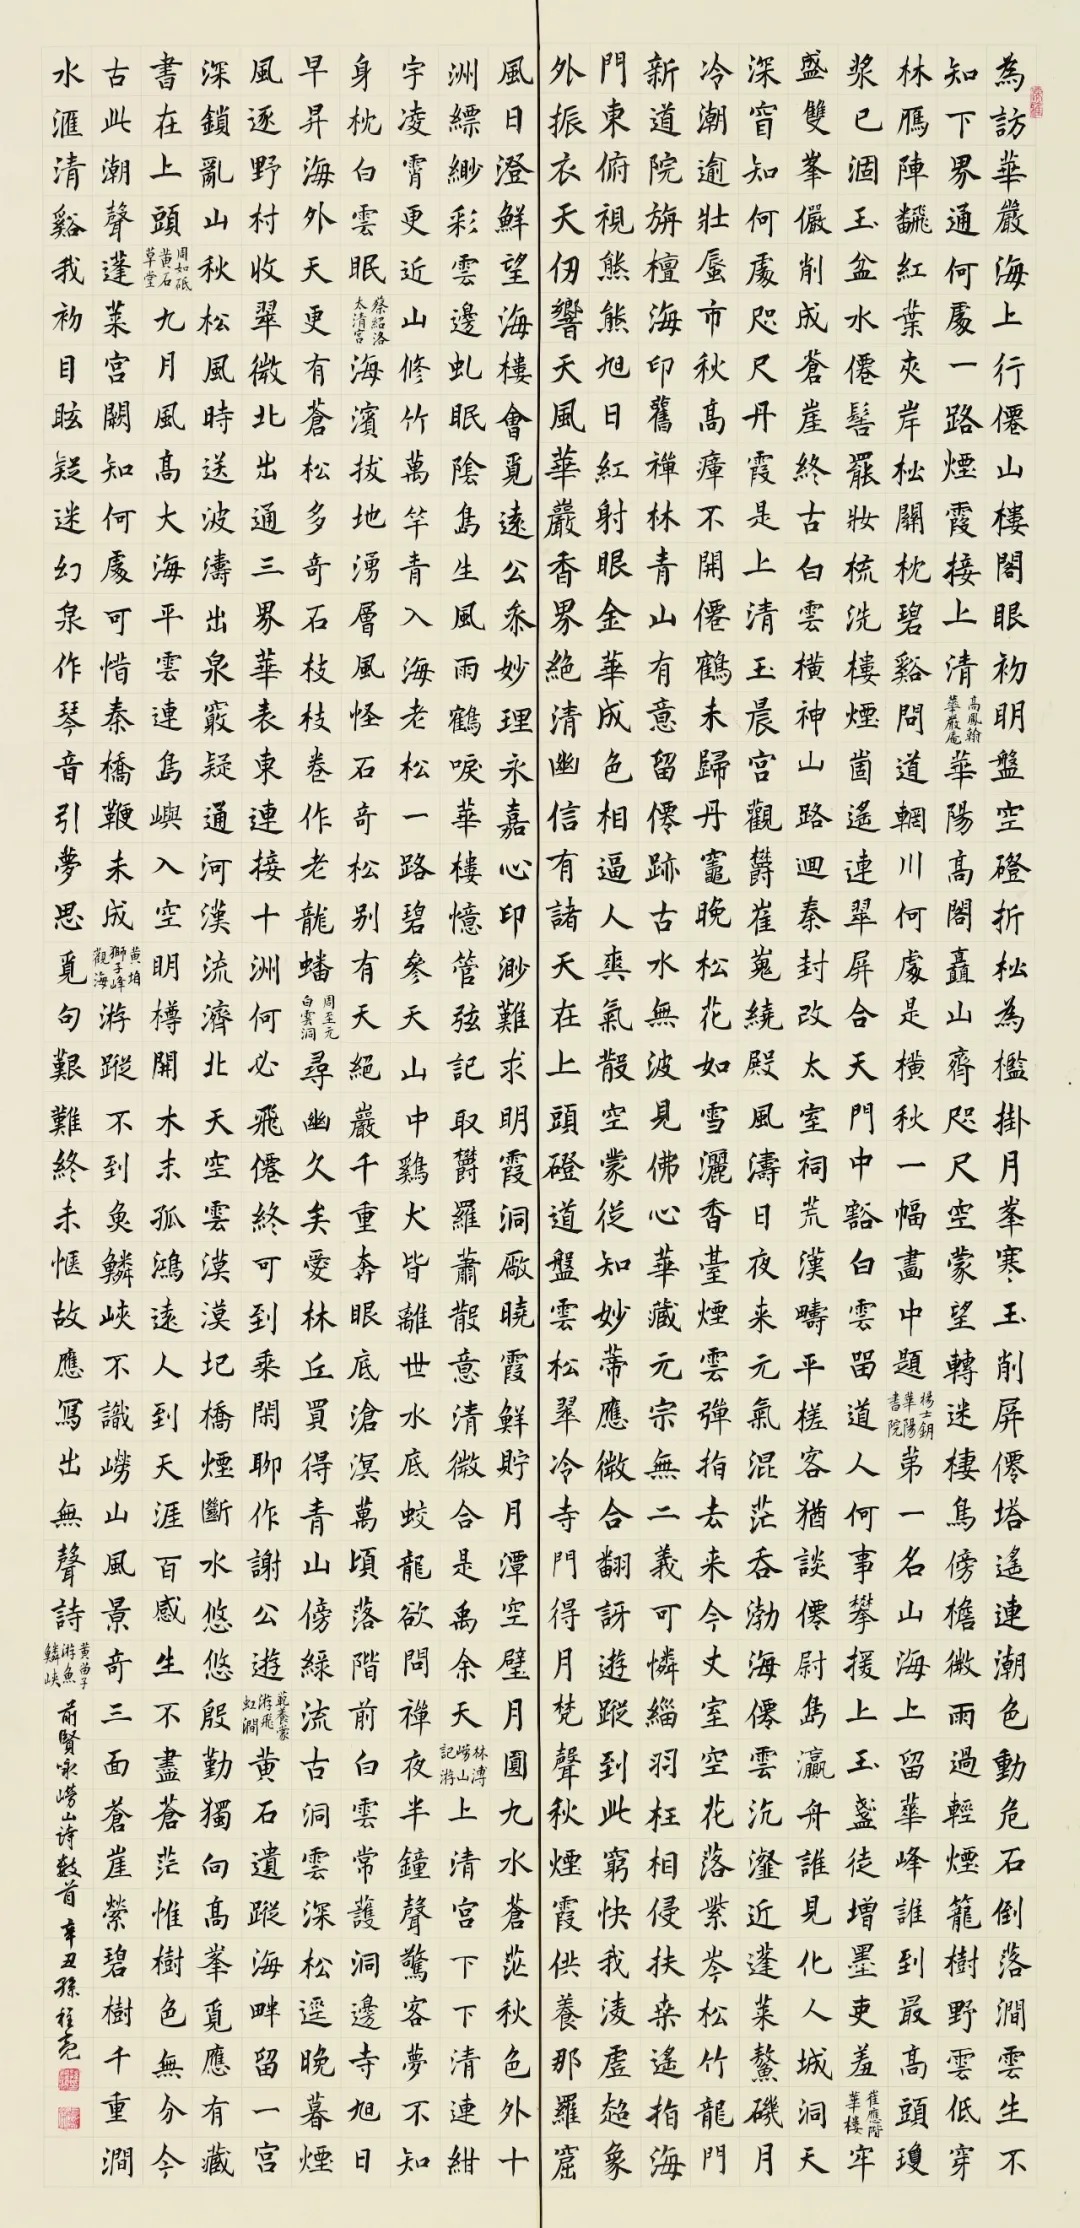 為訪華嚴海上行僊山樓閣眼初明盤空磴折松為檻掛月峯寒玉削屏僊塔遙連潮色動危石倒落澗雲生不
知下界通何處一路煙霞接上清高鳳翰華嚴庵華陽高閣矗山齊咫尺空蒙望轉迷棲鳥傍檐微雨過輕煙籠樹野雲低穿
林鴈陣飜紅葉夾岸松關枕碧谿問道輞川何處是橫秋一幅畫中題楊士鈅華陽書院第一名山海上留華峰誰到最高頭瓊
漿已涸玉盆水僊髻罷妝梳洗樓煙崮遙連翠屏合天門中豁白雲留道人何事攀援上玉盞徒增墨吏羞崔應階華樓牢
盛雙峯儼削成蒼崖終古白雲橫神山路迴秦封改太室祠荒漢疇平槎客猶談僊尉島瀛舟誰見化人城洞天
深窅知何處咫尺丹霞是上清玉晨宮觀欝崔嵬繞殿風濤日夜来元氣混茫吞渤海僊雲沆瀣近蓬萊鰲磯月
冷潮逾壯蜃市秋高瘴不開僊鶴未歸丹竈晚松花如雪灑香臺煙雲彈指去来今丈室空花落業岑松竹龍門
新道院旃檀海印舊禪林青山有意留僊跡古水無波見佛心華藏元宗無二義可憐緇羽枉相侵扶桒遙指海
門東俯視熊熊旭日紅射眼金華成色相逼人爽氣散空蒙從知妙蒂應微合翻訝遊蹤到此窮快我淩虛超象
外振衣天仞響天風華巖香界絕清幽信有諸天在上頭磴道盤雲松翠冷寺門得月梵聲秋煙霞供養那羅窟
風日澄鮮望海樓會覓遠公叅妙理永嘉心印渺難求明霞洞厰曉霞鮮貯月潭空璧月圓九水蒼茫秋色外十
洲縹緲彩雲邊虬眠陰島生風雨鶴唳華樓憶管弦記取欝羅蕭散意清微合是禹余天林溥嶗山記游上清宮下下清連紺
宇凌霄更近山修竹萬竿青入海老松一路碧參天山中鷄犬皆離世水底蛟龍欲問禪夜半鐘聲驚客夢不知
身枕白雲眠蔡紹洛太清宮海濱拔地湧層風怪石奇松别有天絕巖千重奔眼底滄溟萬頃落階前白雲常護洞邊寺旭日
早昇海外天更有蒼松多奇石枝枝卷作老龍蟠周至元白雲洞尋幽久矣愛林丘買得青山傍綠流古洞雲深松逕晚暮煙
風逐野村收翠微北出通三界華表東連接十洲何必飛僊終可到乘閑聊作謝公遊范養蒙游飛虹澗黃石遺蹤海畔留一宮
深鎖亂山秋松風時送波濤出泉竅疑通河漢流濟北天空雲漠漠圯橋煙斷水悠悠殷勤獨向高峯覓應有藏
書在上頭周如砥黃石草堂九月風高大海平雲連島嶼入空明樽開木末孤鴻遠人到天涯百感生不盡蒼茫惟樹色無分今
古此潮聲蓬萊宮闕知何處可惜秦橋鞭未成黃垍獅子峰觀海游蹤不到魚鱗峽不識嶗山風景奇三面蒼崖縈碧樹千重澗
水滙清谿我初目眩疑迷幻泉作琴音引夢思覓句艱難終未愜故應寫出無聲詩黃游魚鱗峽前賢咏嶗山诗数首辛丑孫程亮